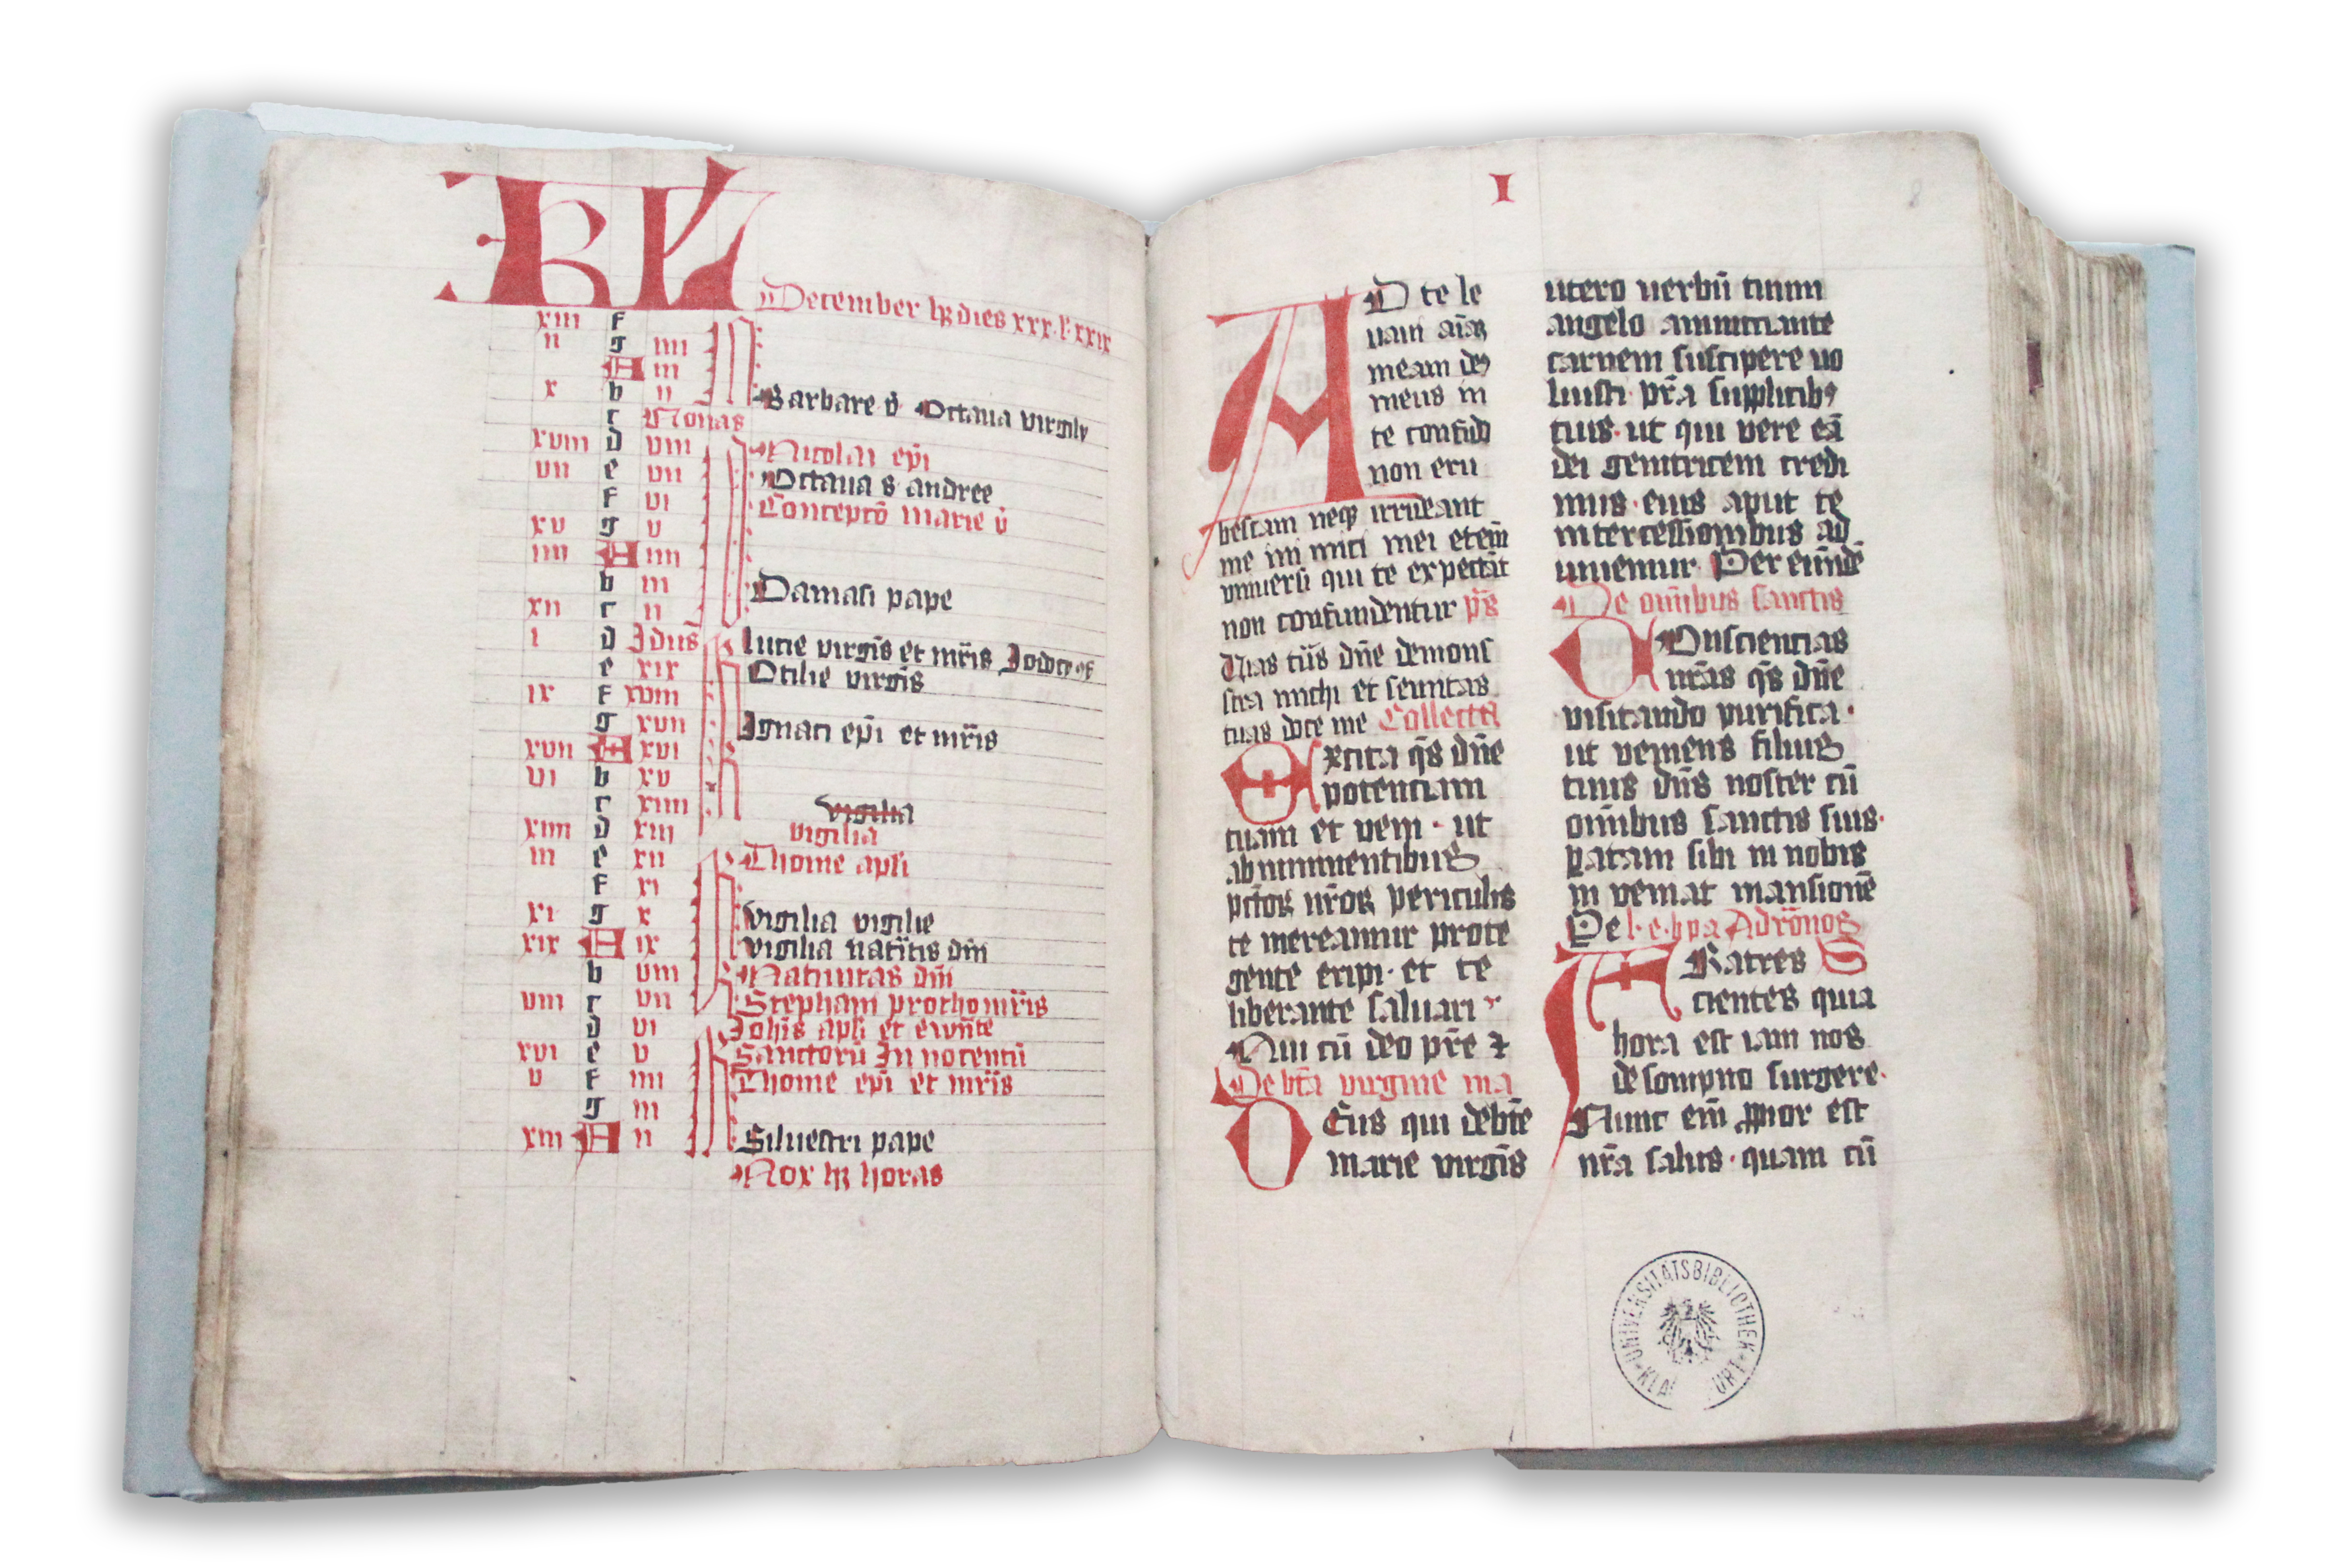 KL
December hꝫ dies xxx. lᵃ. xxix
xiii f
ii g iiii
A iii
x b ii Barbare v̓ Octaua virgīs
c Nonas
xviii d viii Nicolai ep̄i
vii e vii Octaua s andree
f vi Conceptō marie v̓
xv g v
iiii A iiii
b iii Damasi pape
xii c ii
i d Idus Lucie virgīs et mr̄is
e xix Otilie virgīs
ix f xviii
g xvii Ignaci ep̄i et mr̄is
xvii A xvi
vi b xv
c xiiii vigilia
xiiii d xiii vigilia
iii e xii Thome apl̄i
f xi
xi g x vigilia vigilie
xix A ix vigilia natīitis dn̄i
b viii Natiuitas dn̄i
viii c vii Stephani prothomr̄is
d vi Joh̄is apl̄i et ewn̄te
xvi e v Sanctorū Innocentū
v f iiii Thome ep̄i et mr̄is
g iii
xiii A ii Siluestri pape
Nox hꝫ horas
I
8
AD te le
uaui aīaꝫ
meam deꝰ
meus in
te confido
non eru
bescam neqꝫ irrideant
me inimici mei etem̄
vniuersi qui te expectāt
non confundentur p̄s
Vias tūs dn̄e demons
tra michi et semitas
tuas doce me Collecta
Excita q̄s dn̄e
potenciam
tuam et veni · ut
ab imminentibus
pctōꝝ nr̄oꝝ periculis
te mereamur prote
gente eripi · et te
liberante saluari
Qui cū deo pr̄e ⁊
De btā virgine ma
DEus qui de btē
marie virgīs
utero verbū tuum
angelo annunciante
carnem suscipere uo
luisti · pr̄a supplicibꝰ
tuis · ut qui vere eā
dei genitricem credi
mus · eius aput te
intercessionibus ad
iuuemur Per eūndē
De om̄ibus sanctis
COnsciencias
nr̄as q̄s dn̄e
visitando purifica ·
ut veniens filius
tuus dn̄s noster cū
om̄ibus sanctis suis ·
ꝑatam sibi in nobis
inveniat mansionē
Ad rōnos
FRatres S
cientes quia
hora est iam nos
de sompno surgere ·
Nunc em̄ ꝓpior est
nr̄a salus · quam cū
UNIVERSITÄTSBIBLIOTHEK · KLA URT ·